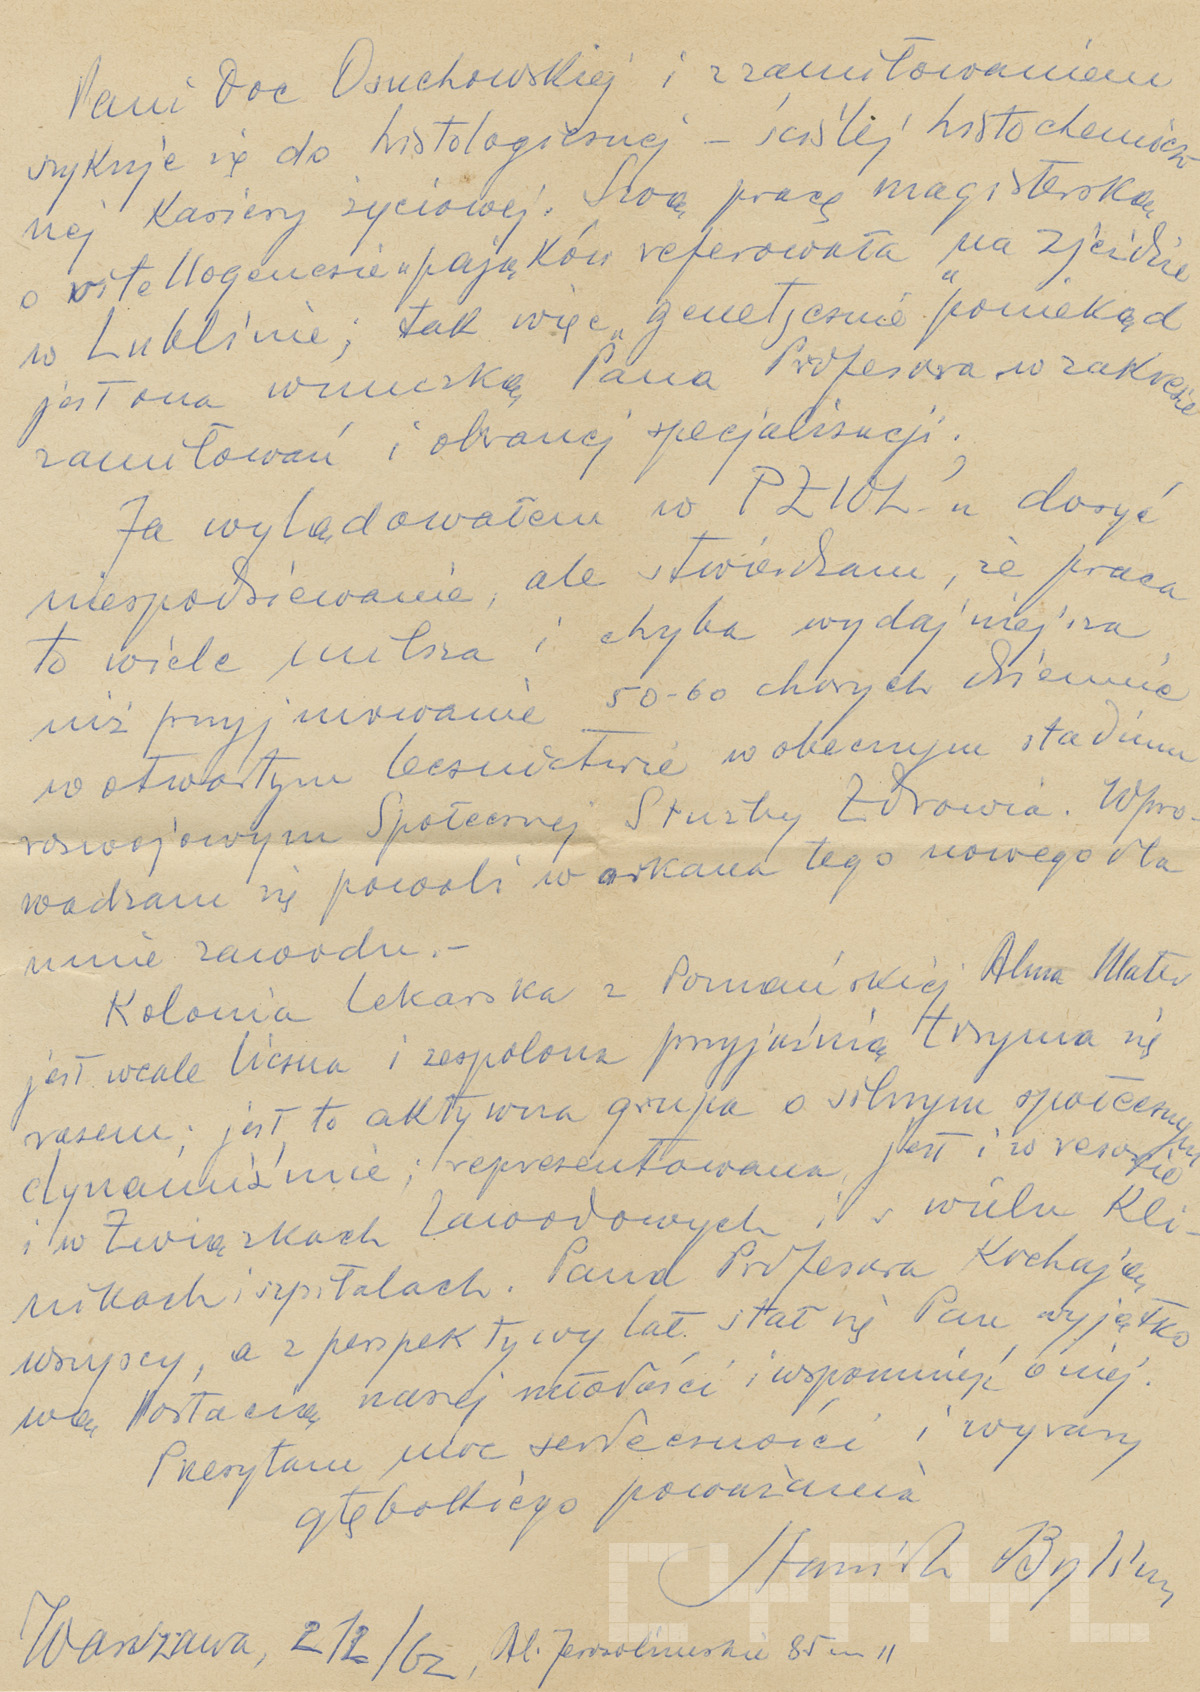 Pani Doc Osuchowskiej i z zamiłowaniem
szykuje się do histologicznej – ściślej histochemicz
nej kariery życiowej. Swą pracę magisterską
o vitellogenezie "pająków referowała na zjeździe
w Lublinie; tak więc „genetycznie" poniekąd
jest ona wnuczką Pana Profesora w zakresie
zamiłowań i obranej specjalizacji.
Ja wylądowałem w PZWL-u dosyć
niespodziewanie, ale stwierdzam, że praca
to wiele milsza i chyba wydajniejsza
niż przyjmowanie 50-60 chorych dziennie
w otwartym lecznictwie w obecnym stadium
rozwojowym Społecznej Służby Zdrowia. Wpro-
wadzam się powoli w arkana tego nowego dla
mnie zawodu.–
Kolonia lekarska z Poznańskiej Alma Mater
jest wcale liczna i zespolona przyjaźnią trzyma się
razem; jest to aktywna grupa o silnym społecznym
dynamiźmie; reprezentowana jest i w resorcie
i w Związkach Zawodowych i w wielu Kli-
nikach i szpitalach. Pana Profesora Kochają
wszyscy, a z perspektywy lat stał się Pan wyjątko
wą Postacią naszej młodości i wspomnień o niej.
Przesyłam moc serdeczności i wyrazy
głębokiego poważania
Warszawa, 2/2/62, Al. Jerozolimskie 85 m 11
CYRYL